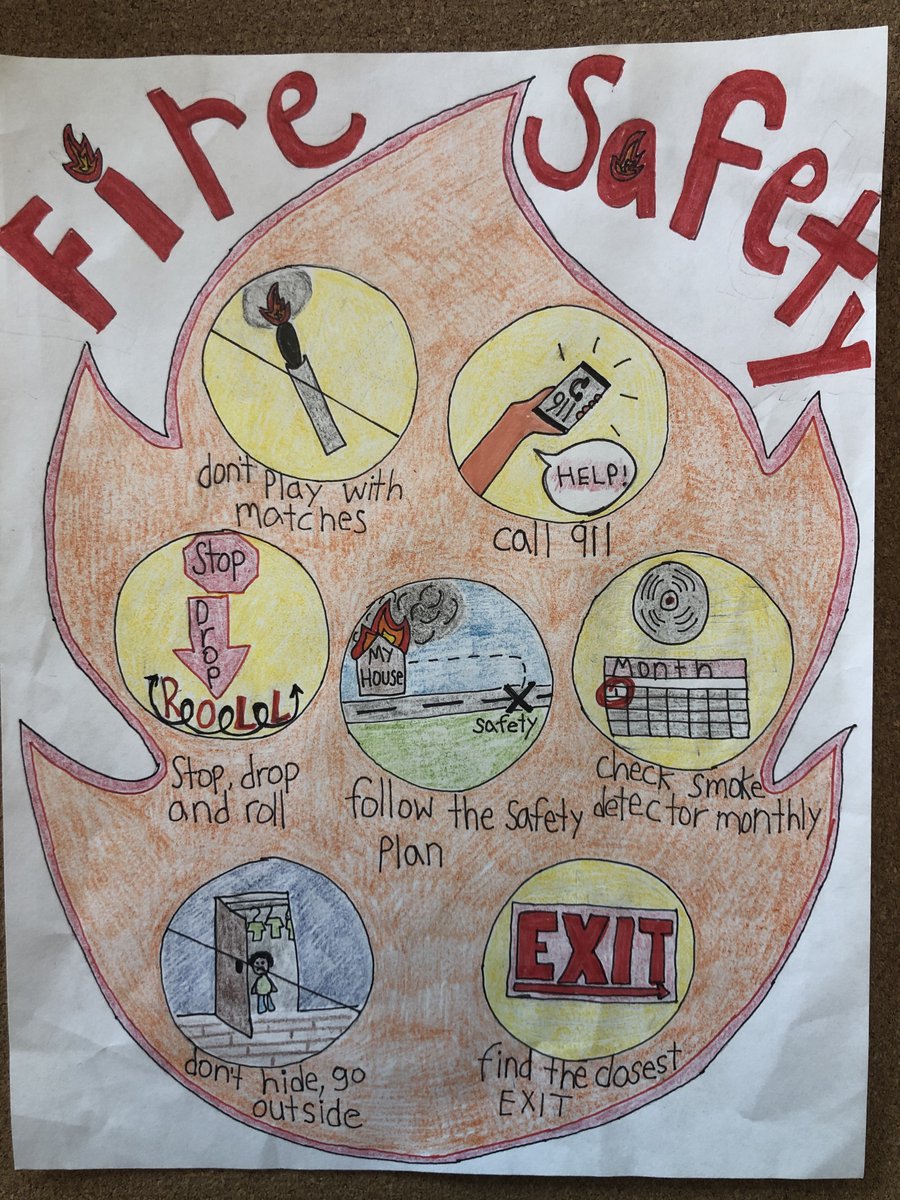 Fire Safety
don't play with
matches
911
HELP!
call 911
Stop
Drop
ROLL
Stop, drop
and roll
MY
House
safety
follow the safety
plan
Month
check smoke
detector monthly
don't hide, go
outside
EXIT
find the closest
EXIT